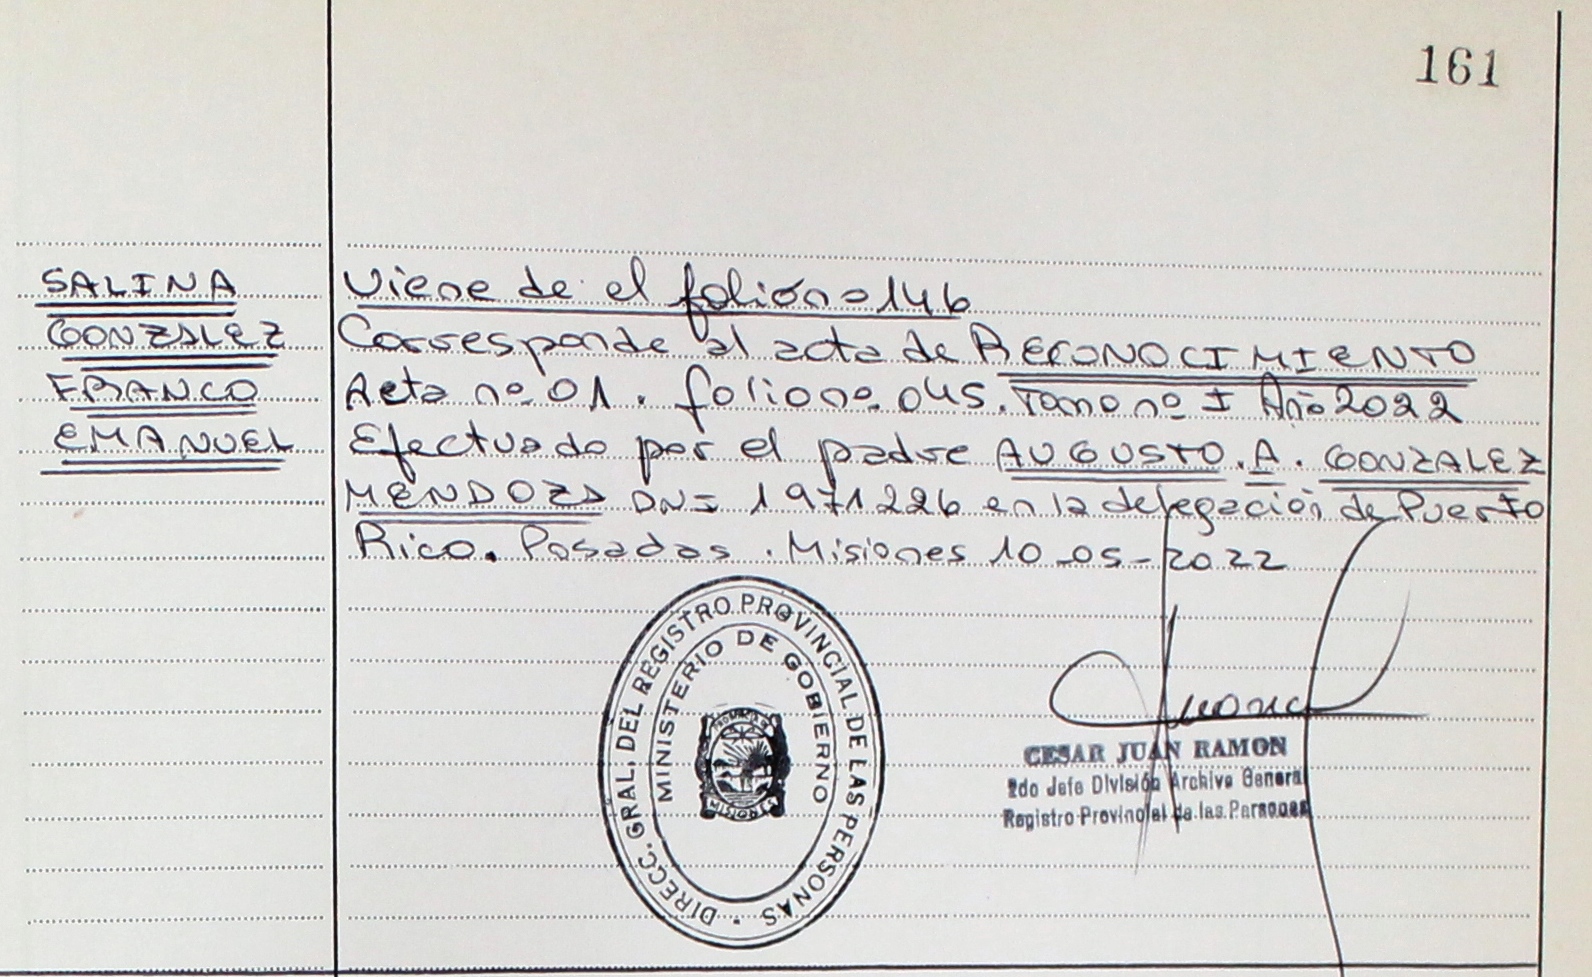 161
SALINA
GONZALEZ
FRANCO
EMANUEL
Viene de el folio nº 146
Corresponde al acta de RECONOCIMIENTO
Acta nº 01. folio nº 045. Tomo nº I Año 2022
Efectuado por el padre AUGUSTO. A. GONZALEZ
MENDOZA DNI 1971226 en la delegación de Puerto
Rico. Posadas. Misiones 10-05-2022
DIRECC. GRAL. DEL REGISTRO PROVINCIAL DE LAS PERSONAS
MINISTERIO DE GOBIERNO
PROVINCIA DE
MISIONES
CESAR JUAN RAMON
2do Jefe División Archivo General
Registro Provincial de las Personas